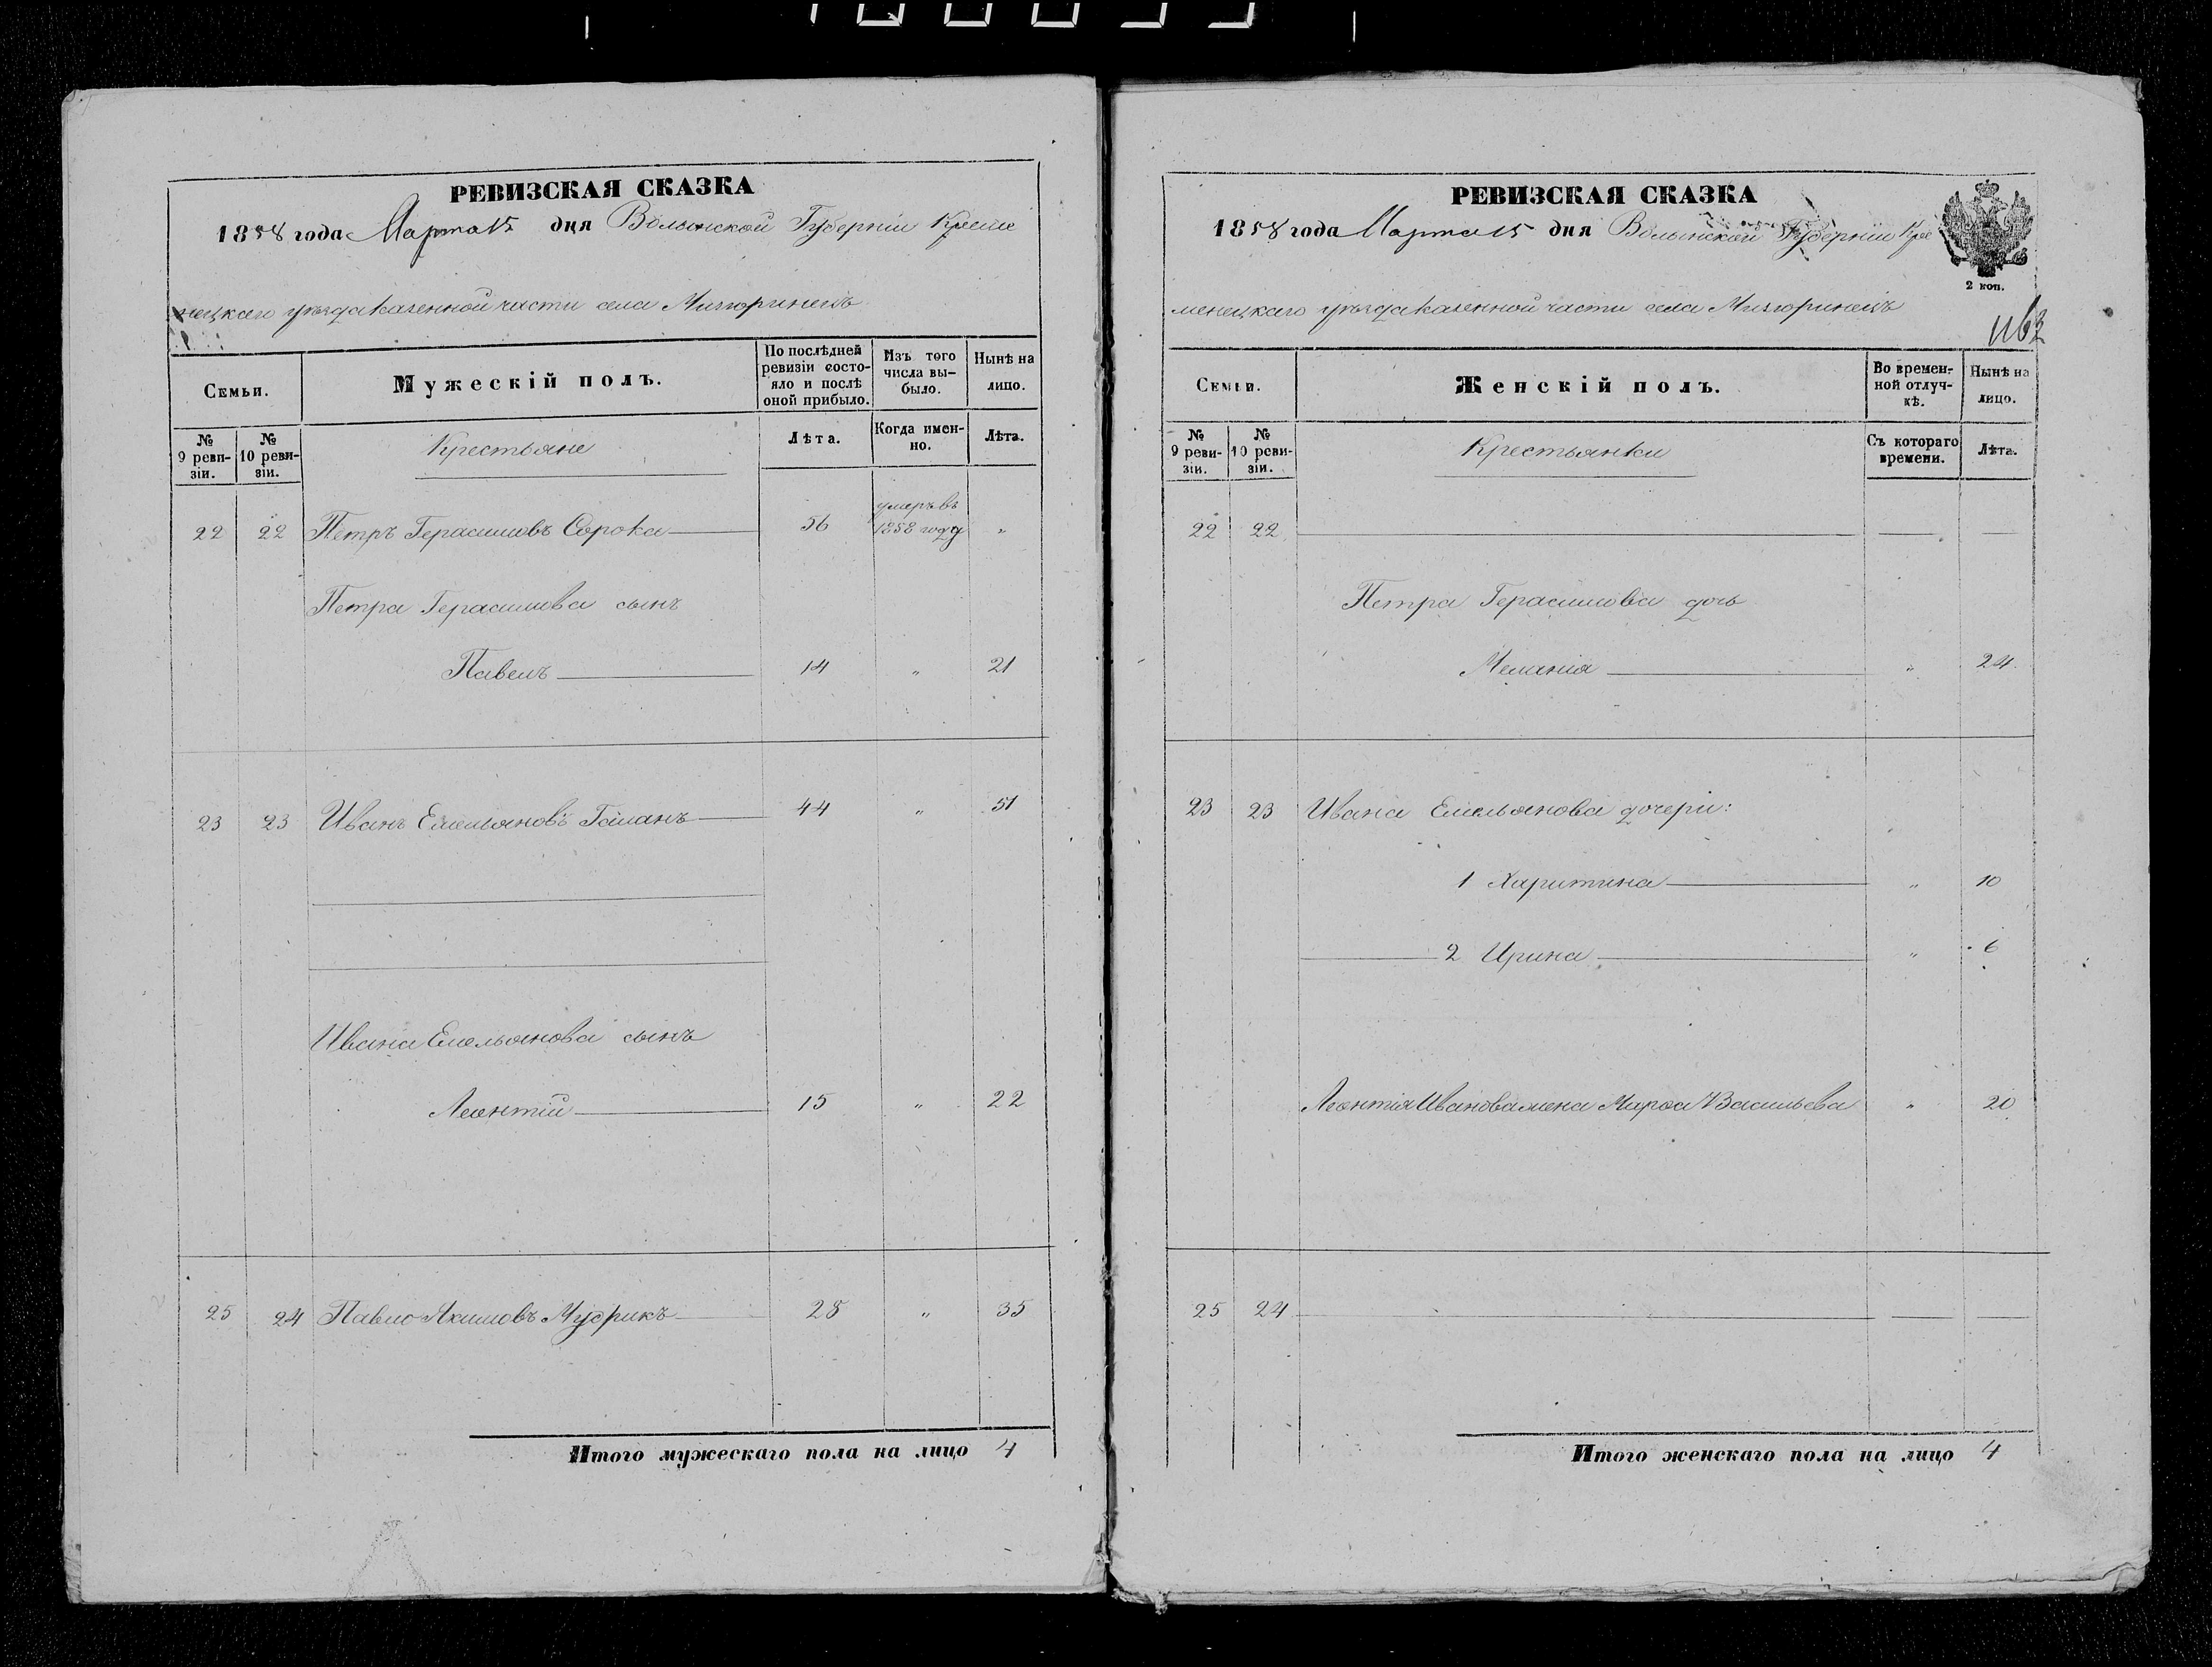 РЕВИЗСКАЯ СКАЗКА
1858 года Марта 15 дня Волынской Губерніи Креме
нецкаго уѣзда казенной части села Мизюринецъ
Семьи.
Мужескій полъ.
По послѣдней ревизіи состояло и послѣ оной прибыло.
Изъ того числа выбыло.
Нынѣ на лицо.
№ 9 ревизіи.
№ 10 ревизіи.
Крестьяне
Лѣта.
Когда именно.
Лѣта.
22 22 Петръ Герасимовъ Сорока 56 умеръ въ 1858 году „
Петра Герасимова сынъ
Павелъ 14 „ 21
23 23 Иванъ Емельяновъ Гаманъ 44 „ 51
Ивана Емельянова сынъ
Леонтій 15 „ 22
25 24 Павло Якимовъ Мудрикъ 28 „ 35
Итого мужескаго пола на лицо 4
РЕВИЗСКАЯ СКАЗКА
1858 года Марта 15 дня Волынской Губерніи Кре
менецкаго уѣзда казенной части села Мизюринецъ
2 коп.
Семьи.
Женскій полъ.
Во временной отлучкѣ.
Нынѣ на лицо.
№ 9 ревизіи.
№ 10 ревизіи.
Крестьянки
Съ котораго времени.
Лѣта.
22 22
Петра Герасимова дочь
Меланія „ 24
23 23 Ивана Емельянова дочери:
1 Харитина „ 10
2 Ирина „ 6
Леонтія Иванова жена Марѳа Васильева „ 20
25 24
Итого женскаго пола на лицо 4